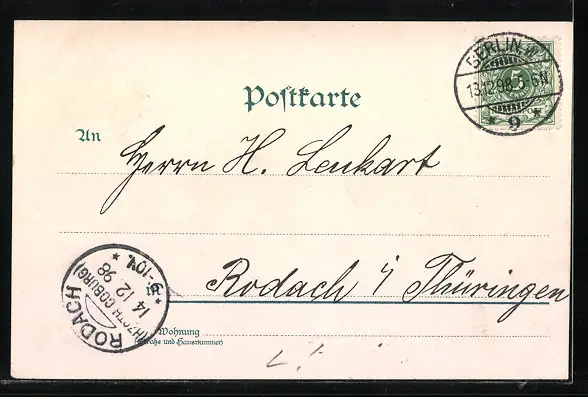 BERLIN W
13.12.98. 5-6N
* 9 *
5
Postkarte
An
Herrn H. Lenkart
Rodach i/ Thüringen
RODACH
(HZGTH. COBURG)
14 12 98
Wohnung
(Straße und Hausnummer)